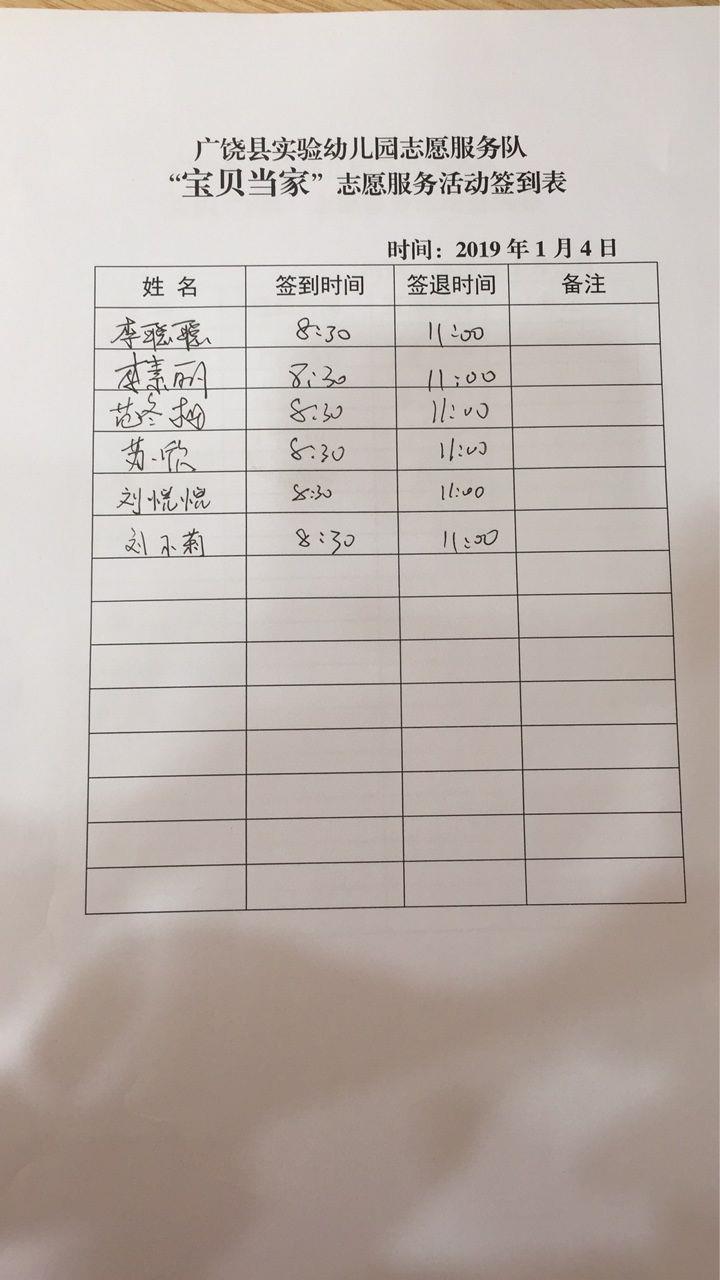 广饶县实验幼儿园志愿服务队
“宝贝当家”志愿服务活动签到表
时间：2019年1月4日
姓 名 签到时间 签退时间 备注
李聪聪 8:30 11:00
李素丽 8:30 11:00
范冬梅 8:30 11:00
苏欣 8:30 11:00
刘恍恍 8:30 11:00
刘小莉 8:30 11:00